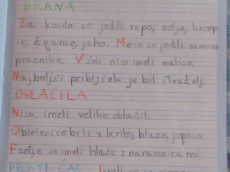 HRANA
Za kosilo so jedli repo, zelje, krompir
in žgance, juho. Meso so jedli samo za
praznike. V šoli niso imeli malice.
Najboljši priboljšek je bil štrudelj.
OBLAČILA
Niso imeli veliko oblačil.
Oblečeni so bili v krilo, bluzo, jopico.
Fantje so imeli hlače z naramnicami.